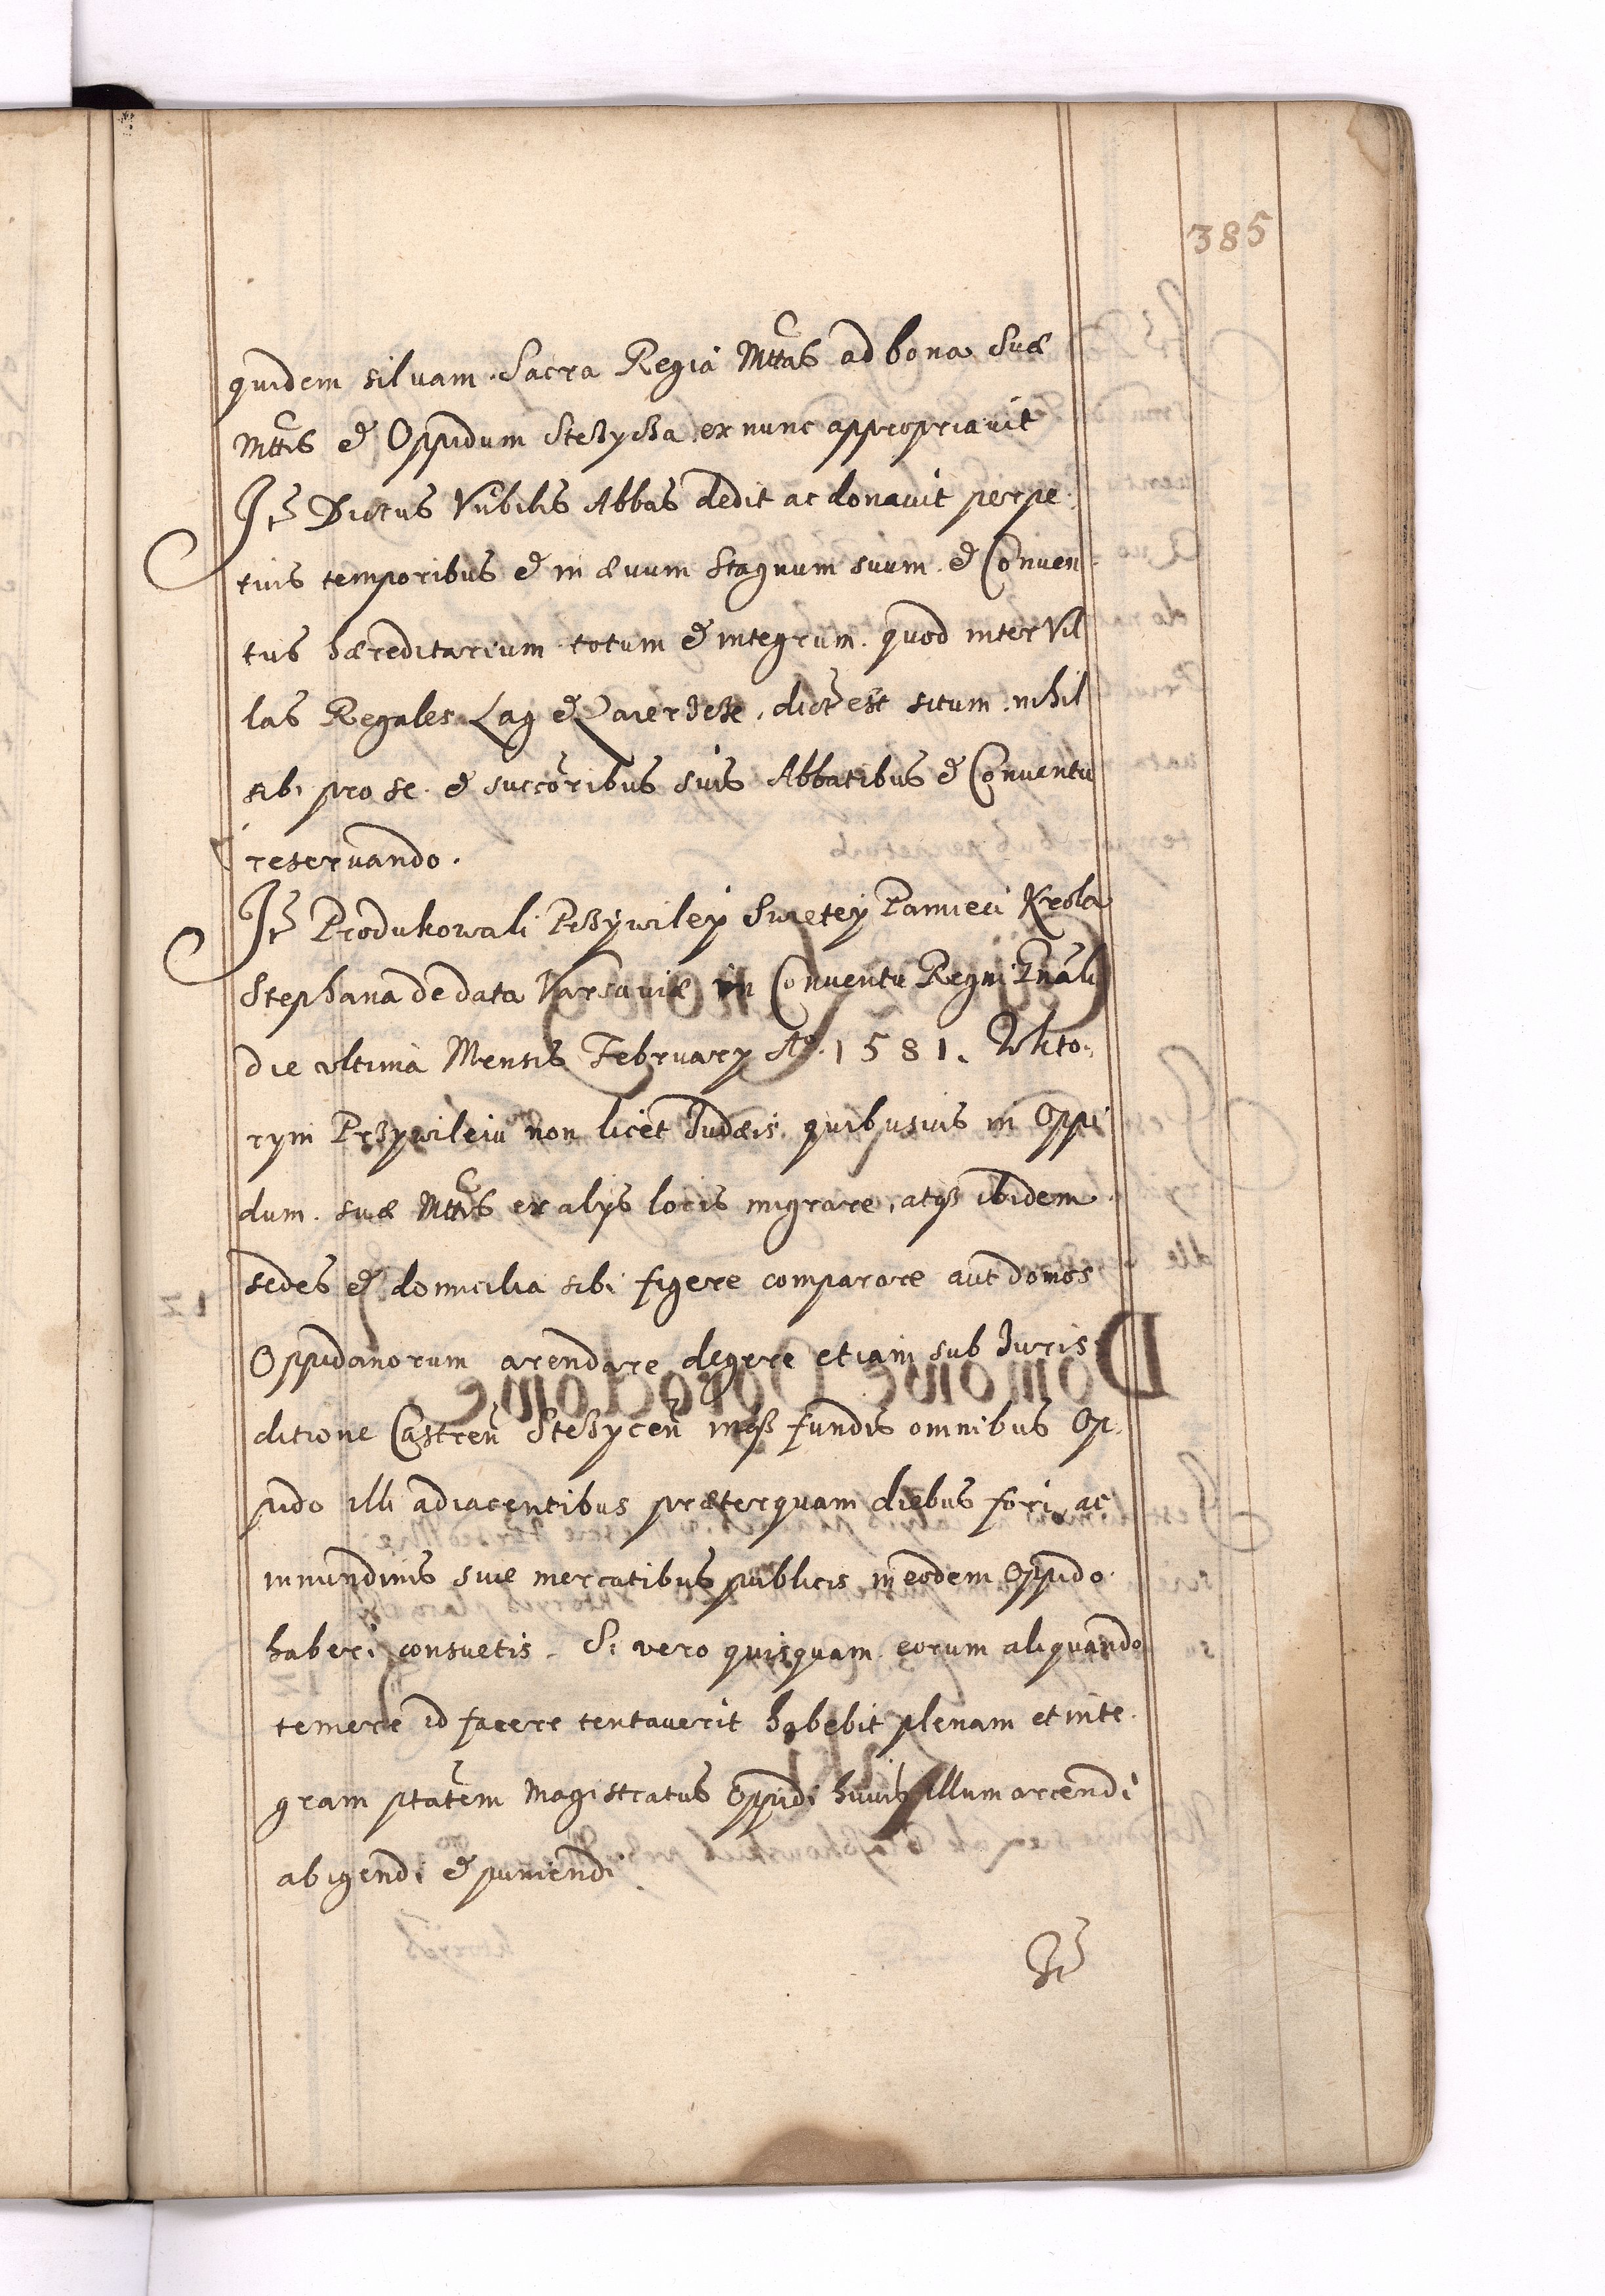 385
quidem silvam Sacra Regia Mttas ad bona Suæ
Mttis et Oppidum Stezycza ex nunc appropriavit
It Dictus Vnbilis Abbas dedit ac donavit perpe.
tuis temporibus et in ævum Stagnum suum et Conven
tus hæreditarium totum et integrum. quod inter Vil
las Regales Lag et dict est situm nihil
sibi pro se et succoribus suis Abbatibus et Conventu
reservando.
It Produkowali Przywiley Swietey Pamieci Krola
Stephana de data Varsaviæ in Conventu Regni Gnali
die vltima Mensis February Ao. 1581. Wkto.
rym Przywileiu non licet Iudæis quibusvis in Oppi
dum suæ Mttis ex alys locis migrare, atqz ibidem
sedes et domicilia sibi figere comparare aut domos
Oppidanorum arendare degere etiam sub Iuris
ditione Castren Stezycen inqz fundis omnibus Op.
pido illi adiacentibus præterquam diebus fori, ac
innundinis sive mercatibus publicis in eodem Oppido
haberi consuetis. Si vero quisquam eorum aliquando
temere id facere tentaverit habebit plenam et inte.
gram ptatem Magistratus Oppidi huius illum arcendi
abigendi et puniendi
It